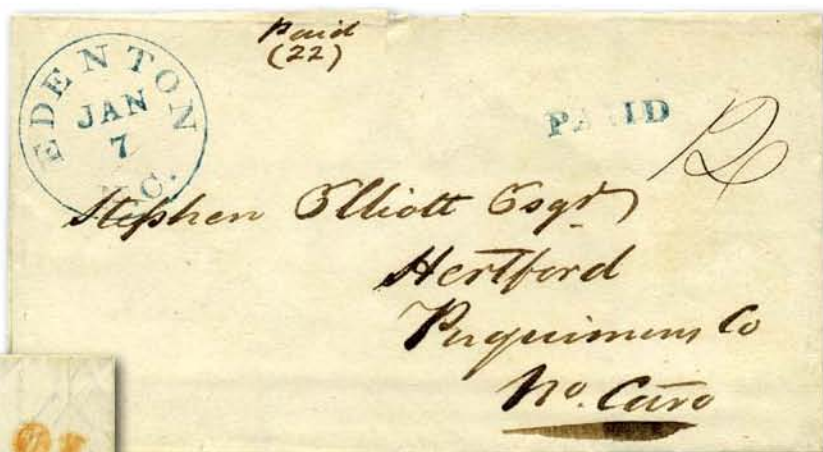 Paid
(22)
EDENTON
JAN
7
N.C.
PAID
12
Stephen Elliott Esqr
Hertford
Perquimens Co
No. Caro